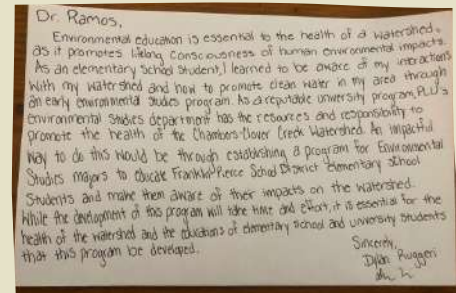 Dr. Ramos,
Environmental education is essential to the health of a watershed,
as it promotes lifelong consciousness of human environmental impacts.
As an elementary school student, I learned to be aware of my interactions
with my watershed and how to promote clean water in my area through
an early environmental studies program. As a reputable university program, PLU's
Environmental Studies department has the resources and responsibility to
promote the health of the Chambers-Clover Creek Watershed. An impactful
way to do this would be through establishing a program for Environmental
Studies majors to educate Franklin Pierce School District elementary school
students and make them aware of their impacts on the watershed.
While the development of this program will take time and effort, it is essential for the
health of the watershed and the educations of elementary school and university students
that this program be developed.
Sincerely,
Dylan Ruggeri